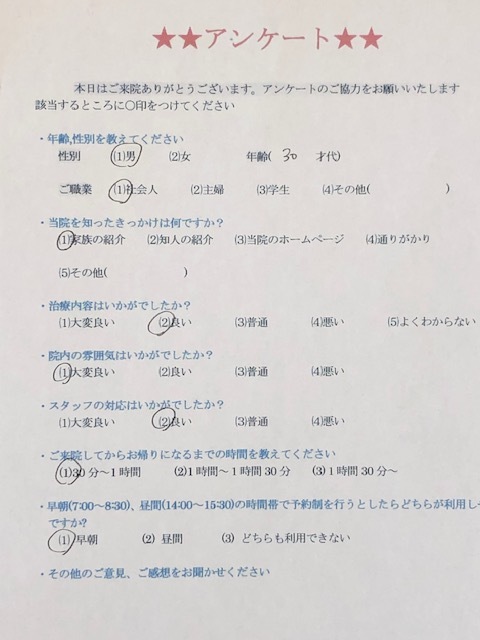 ★★アンケート★★
本日はご来院ありがとうございます。アンケートのご協力をお願いいたします
該当するところに○印をつけてください
・年齢,性別を教えてください
性別 (1)男 (2)女 年齢( 30 才代)
ご職業 (1)社会人 (2)主婦 (3)学生 (4)その他( )
・当院を知ったきっかけは何ですか？
(1)家族の紹介 (2)知人の紹介 (3)当院のホームページ (4)通りがかり
(5)その他( )
・治療内容はいかがでしたか？
(1)大変良い (2)良い (3)普通 (4)悪い (5)よくわからない
・院内の雰囲気はいかがでしたか？
(1)大変良い (2)良い (3)普通 (4)悪い
・スタッフの対応はいかがでしたか？
(1)大変良い (2)良い (3)普通 (4)悪い
・ご来院してからお帰りになるまでの時間を教えてください
(1)30分～1時間 (2)1時間～1時間30分 (3)1時間30分～
・早朝(7:00～8:30)、昼間(14:00～15:30)の時間帯で予約制を行うとしたらどちらが利用し
ですか?
(1) 早朝 (2) 昼間 (3) どちらも利用できない
・その他のご意見、ご感想をお聞かせください